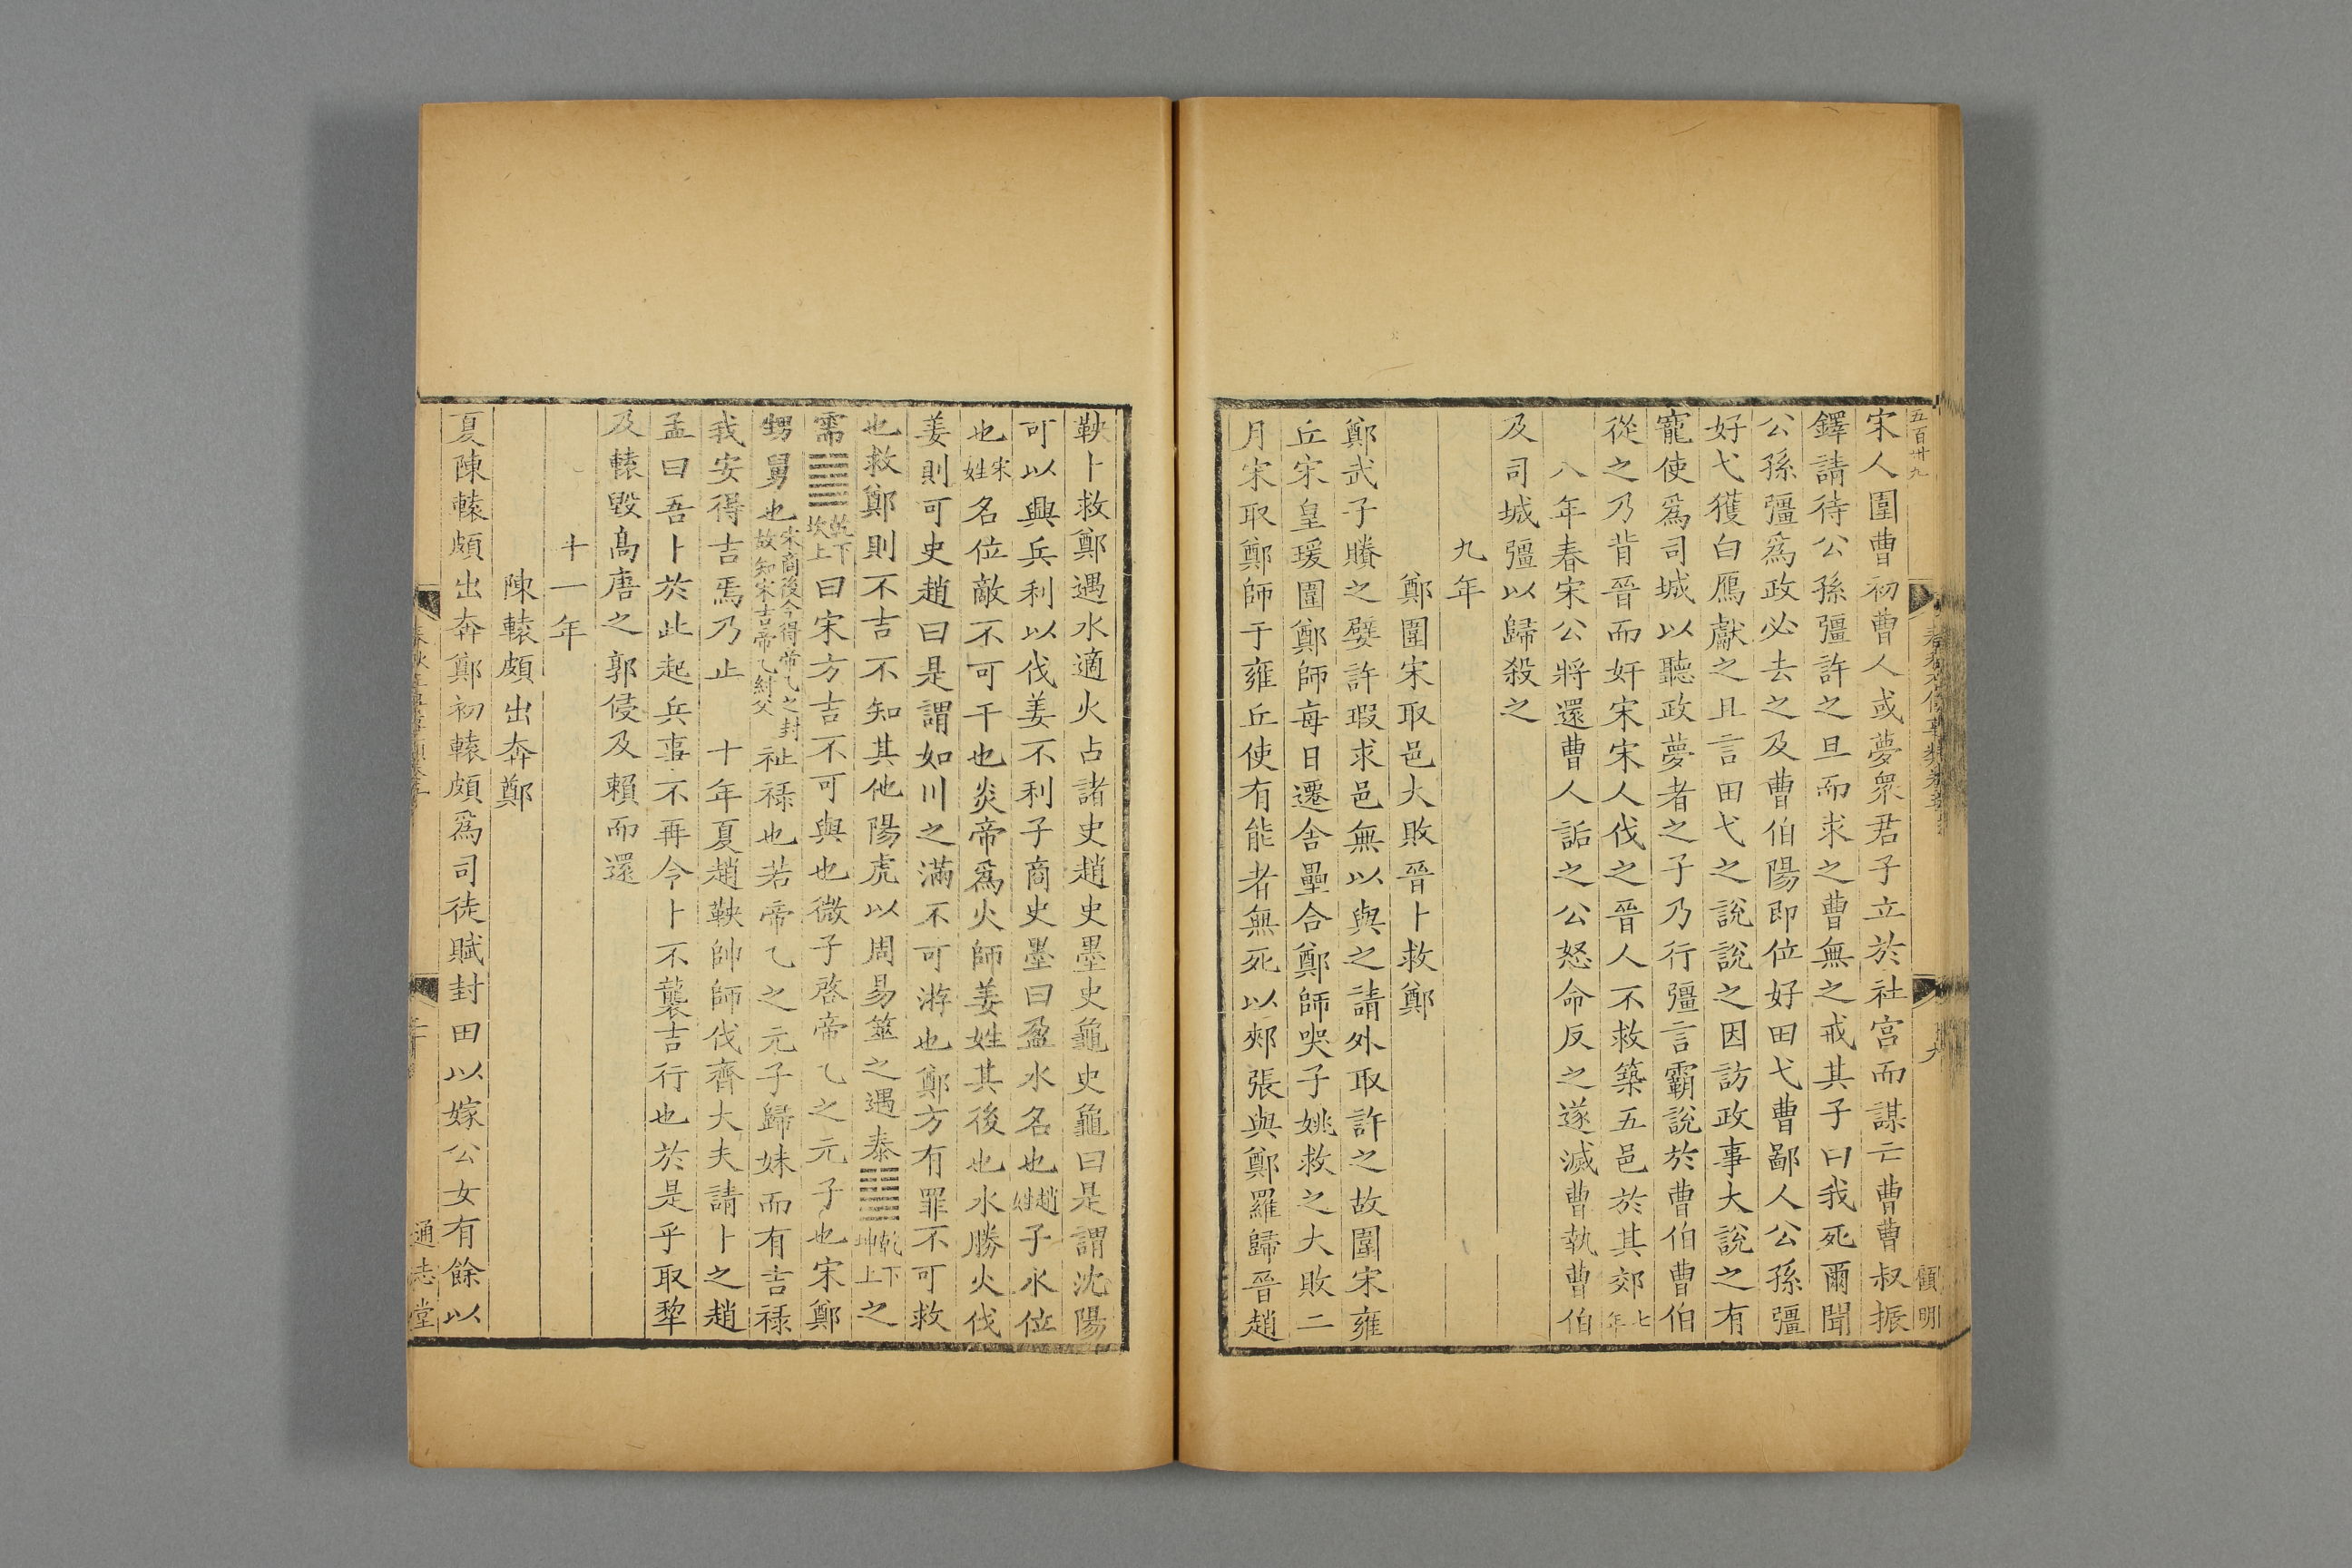 五百卅九
宋人圍曹初曹人或夢衆君子立於社宮而謀亡曹曹叔振
鐸請待公孫彊許之旦而求之曹無之戒其子曰我死爾聞
公孫彊爲政必去之及曹伯陽即位好田弋曹鄙人公孫彊
好弋獲白鴈獻之且言田弋之說說之因訪政事大說之有
寵使爲司城以聽政夢者之子乃行彊言霸說於曹伯曹伯
從之乃背晉而奸宋宋人伐之晉人不救築五邑於其郊七年
八年春宋公將還曹人詬之公怒命反之遂滅曹執曹伯
及司城彊以歸殺之
九年
鄭圍宋取邑大敗晉卜救鄭
鄭武子賸之嬖許瑕求邑無以與之請外取許之故圍宋雍
丘宋皇瑗圍鄭師每日遷舍壘合鄭師哭子姚救之大敗二
月宋取鄭師于雍丘使有能者無死以郟張與鄭羅歸晉趙
顧明
鞅卜救鄭遇水適火占諸史趙史墨史龜史龜曰是謂沈陽
可以興兵利以伐姜不利子商史墨曰盈水名也趙姓子水位
也宋姓名位敵不可干也炎帝爲火師姜姓其後也水勝火伐
姜則可史趙曰是謂如川之滿不可游也鄭方有罪不可救
也救鄭則不吉不知其他陽虎以周易筮之遇泰䷊乾下坤上之
需䷄乾下坎上曰宋方吉不可與也微子啓帝乙之元子也宋鄭
甥舅也宋商後今得帝乙之封故知宋吉帝乙紂父祉祿也若帝乙之元子歸妹而有吉祿
我安得吉焉乃止 十年夏趙鞅帥師伐齊大夫請卜之趙
孟曰吾卜於此起兵事不再令卜不襲吉行也於是乎取犂
及轅毀高唐之郭侵及賴而還
十一年
陳轅頗出奔鄭
夏陳轅頗出奔鄭初轅頗爲司徒賦封田以嫁公女有餘以
通志堂